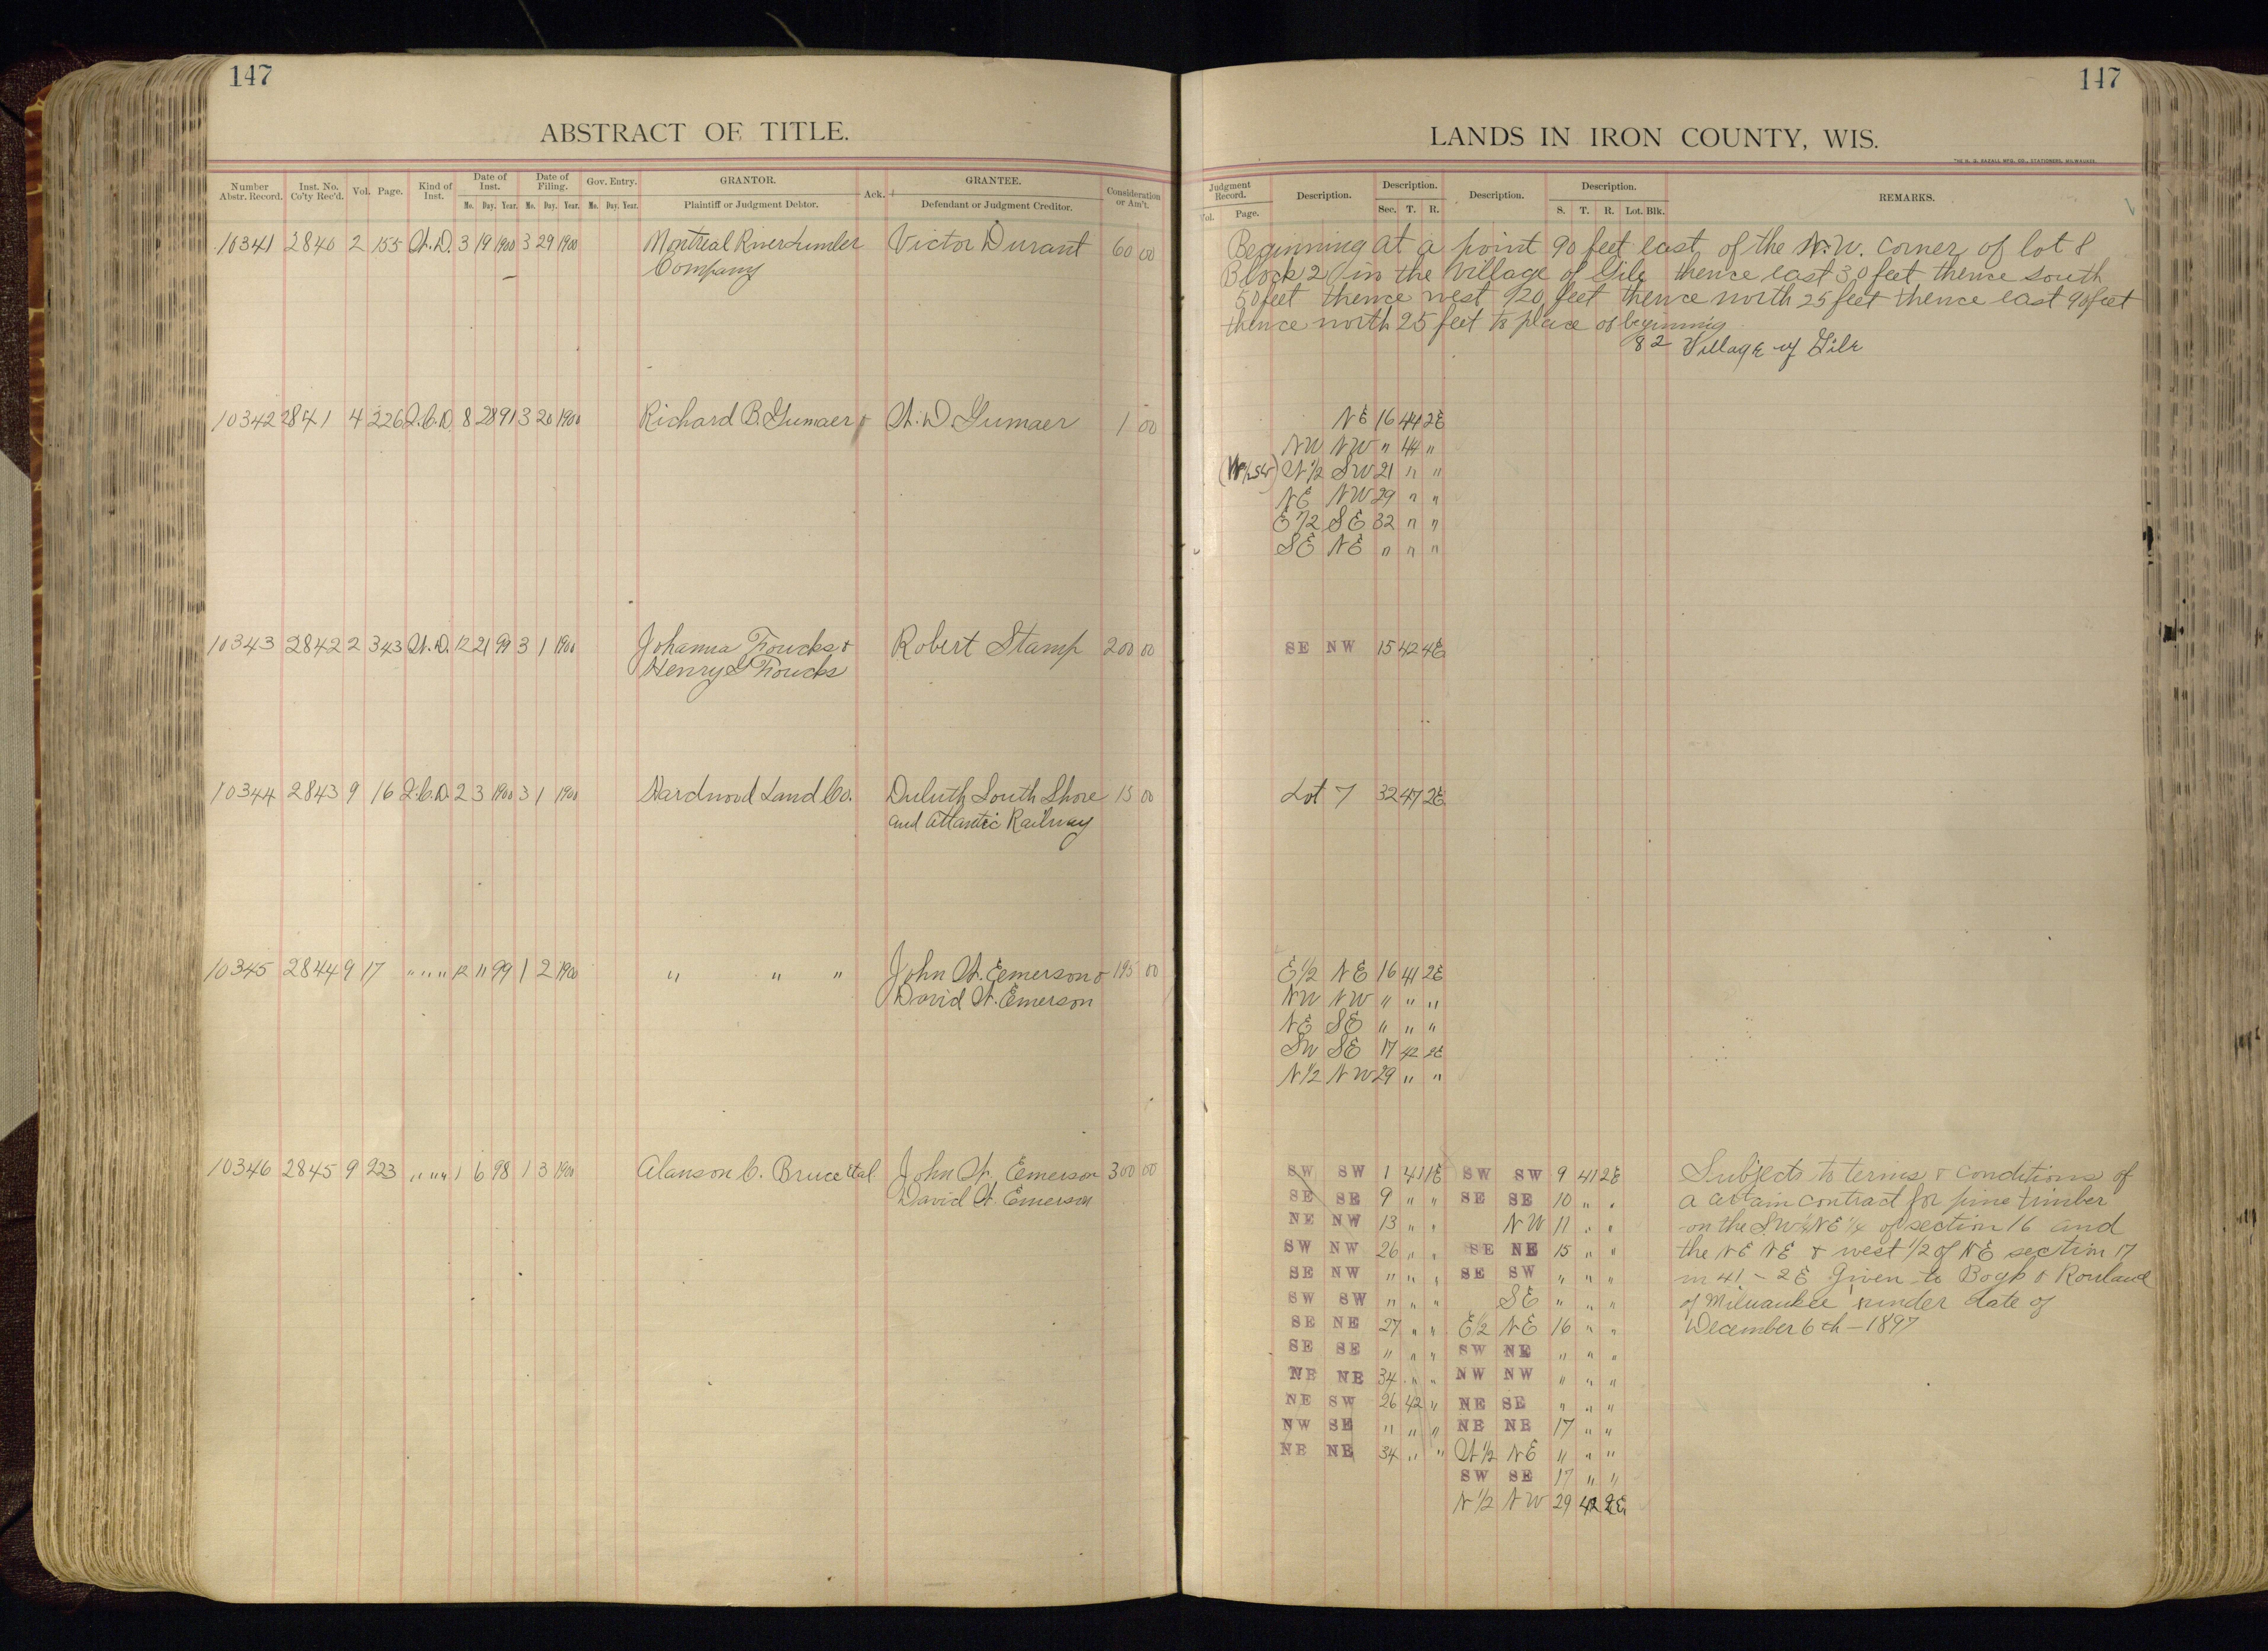 147
ABSTRACT OF TITLE.
Number Abstr. Record. Inst. No. Co'ty Rec'd. Vol. Page. Kind of Inst. Date of Inst. Date of Filing. Gov. Entry. GRANTOR. Ack. GRANTEE. Consideration or Am't.
Mo. Day. Year. Mo. Day. Year. Mo. Day. Year. Plaintiff or Judgment Debtor. Defendant or Judgment Creditor.
10341 2840 2 155 W.D. 3 19 1900 3 29 1900 Montreal River Lumber Victor Durant 60 00
Company
10342 2841 4 226 Q.C.D. 8 28 91 3 20 1900 Richard B. Gumaer & W.D. Gumaer 1 00
10343 2842 2 343 W.D. 12 21 99 3 1 1900 Johanna Foucks & Robert Stamp 200 00
Henry S Foucks
10344 2843 9 16 Q.C.D. 2 3 1900 3 1 1900 Hardwood Land Co. Duluth South Shore 15 00
and Atlantic Railway
10345 2844 9 17 " " " 12 11 99 1 2 1900 " " " John W. Emerson & 195 00
David W. Emerson
10346 2845 9 223 " " " 1 6 98 1 3 1900 Alanson C. Bruce et al John W. Emerson 300 00
David W. Emerson
147
LANDS IN IRON COUNTY, WIS.
THE H. G. RAZALL MFG. CO., STATIONERS, MILWAUKEE
Judgment Record. Description. Description. Description. Description. REMARKS.
Vol. Page. Sec. T. R. S. T. R. Lot. Blk.
Beginning at a point 90 feet east of the N.W. corner of lot 8
Block 2 in the Village of Gile thence east 30 feet thence south
50 feet thence west 120 feet thence north 25 feet thence east 90 feet
thence north 25 feet to place of beginning
8 2 Village of Gile
NE 16 44 2E
NW NW " 44 "
(W½SW) W½ SW 21 " "
NE NW 29 " "
E½ SE 32 " "
SE NE " " "
SE NW 15 42 4E
Lot 7 32 47 2E
E½ NE 16 41 2E
NW NW " " "
NE SE " " "
SW SE 17 42 2E
N½ NW 29 " "
SW SW 1 41 1E SW SW 9 41 2E Subject to terms & conditions of
SE SE 9 " " SE SE 10 " " a certain contract for pine timber
NE NW 13 " " NW 11 " " on the SW¼ NE¼ of section 16 and
SW NW 26 " " SE NE 15 " " the NE NE & west ½ of NE section 17
SE NW " " " SE SW " " " in 41-2E given to Bogk & Rowland
SW SW " " " SE " " " of Milwaukee under date of
SE NE 27 " " E½ NE 16 " " December 6th-1897
SE SE " " " SW NE " " "
NE NE 34 " " NW NW " " "
NE SW 26 42 " NE SE " " "
NW SE " " " NE NE 17 " "
NE NE 34 " " W½ NE " " "
SW SE 17 " "
N½ NW 29 42 2E